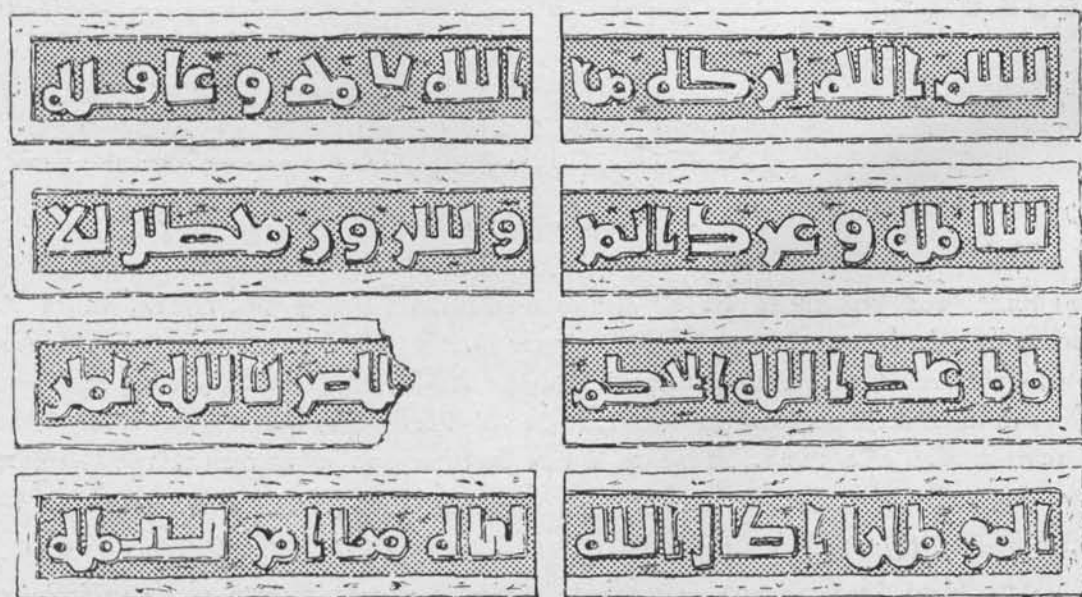 بسم الله بركة من الله تامة وعافية
شاملة وعز دائم وسرور متصل
عبد الله الحكم المستنصر بالله امير
المومنين اطال الله بقاه مما امر بعمله